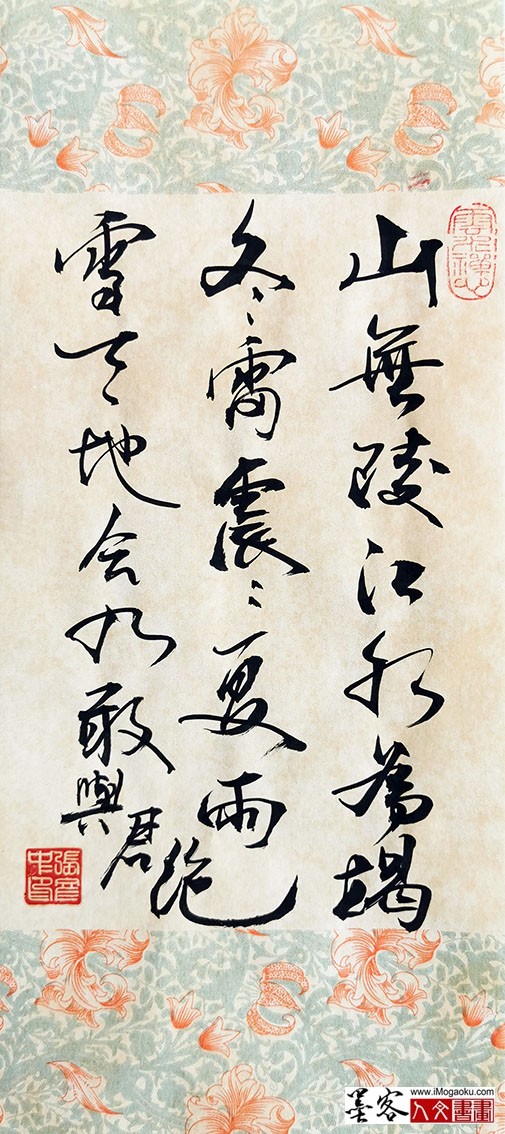 雲水禪心
山無陵江水為竭
冬雷震〻夏雨
雪天地合乃敢與君絕
墨客
www.iMogaoku.com
人文書畫